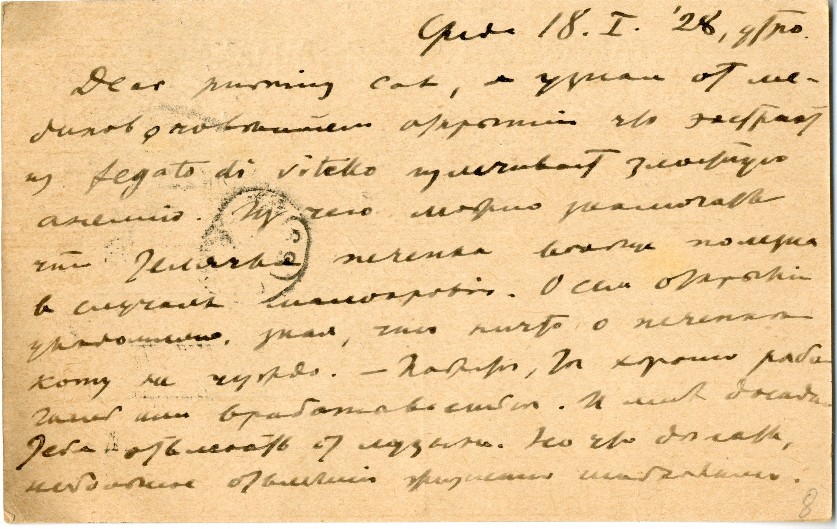 Среда 18. I. '28, утро.
Dear purring cat, я узнал от ме-
диков о новейшем открытии что экстракт
из fegato di vitello излечивает злостную
анемию. Из чего можно заключать
что телячья печенка вообще полезна
в случаях малокровия. О сем открытии
уведомляю, зная, что ничто о печенках
кому не чуждо. – Надеюсь, ты хорошо рабо-
таешь или врабатываешься. И мне досадно
тебя отвлекать от музыки. Но что делать,
небольшое отвлечение